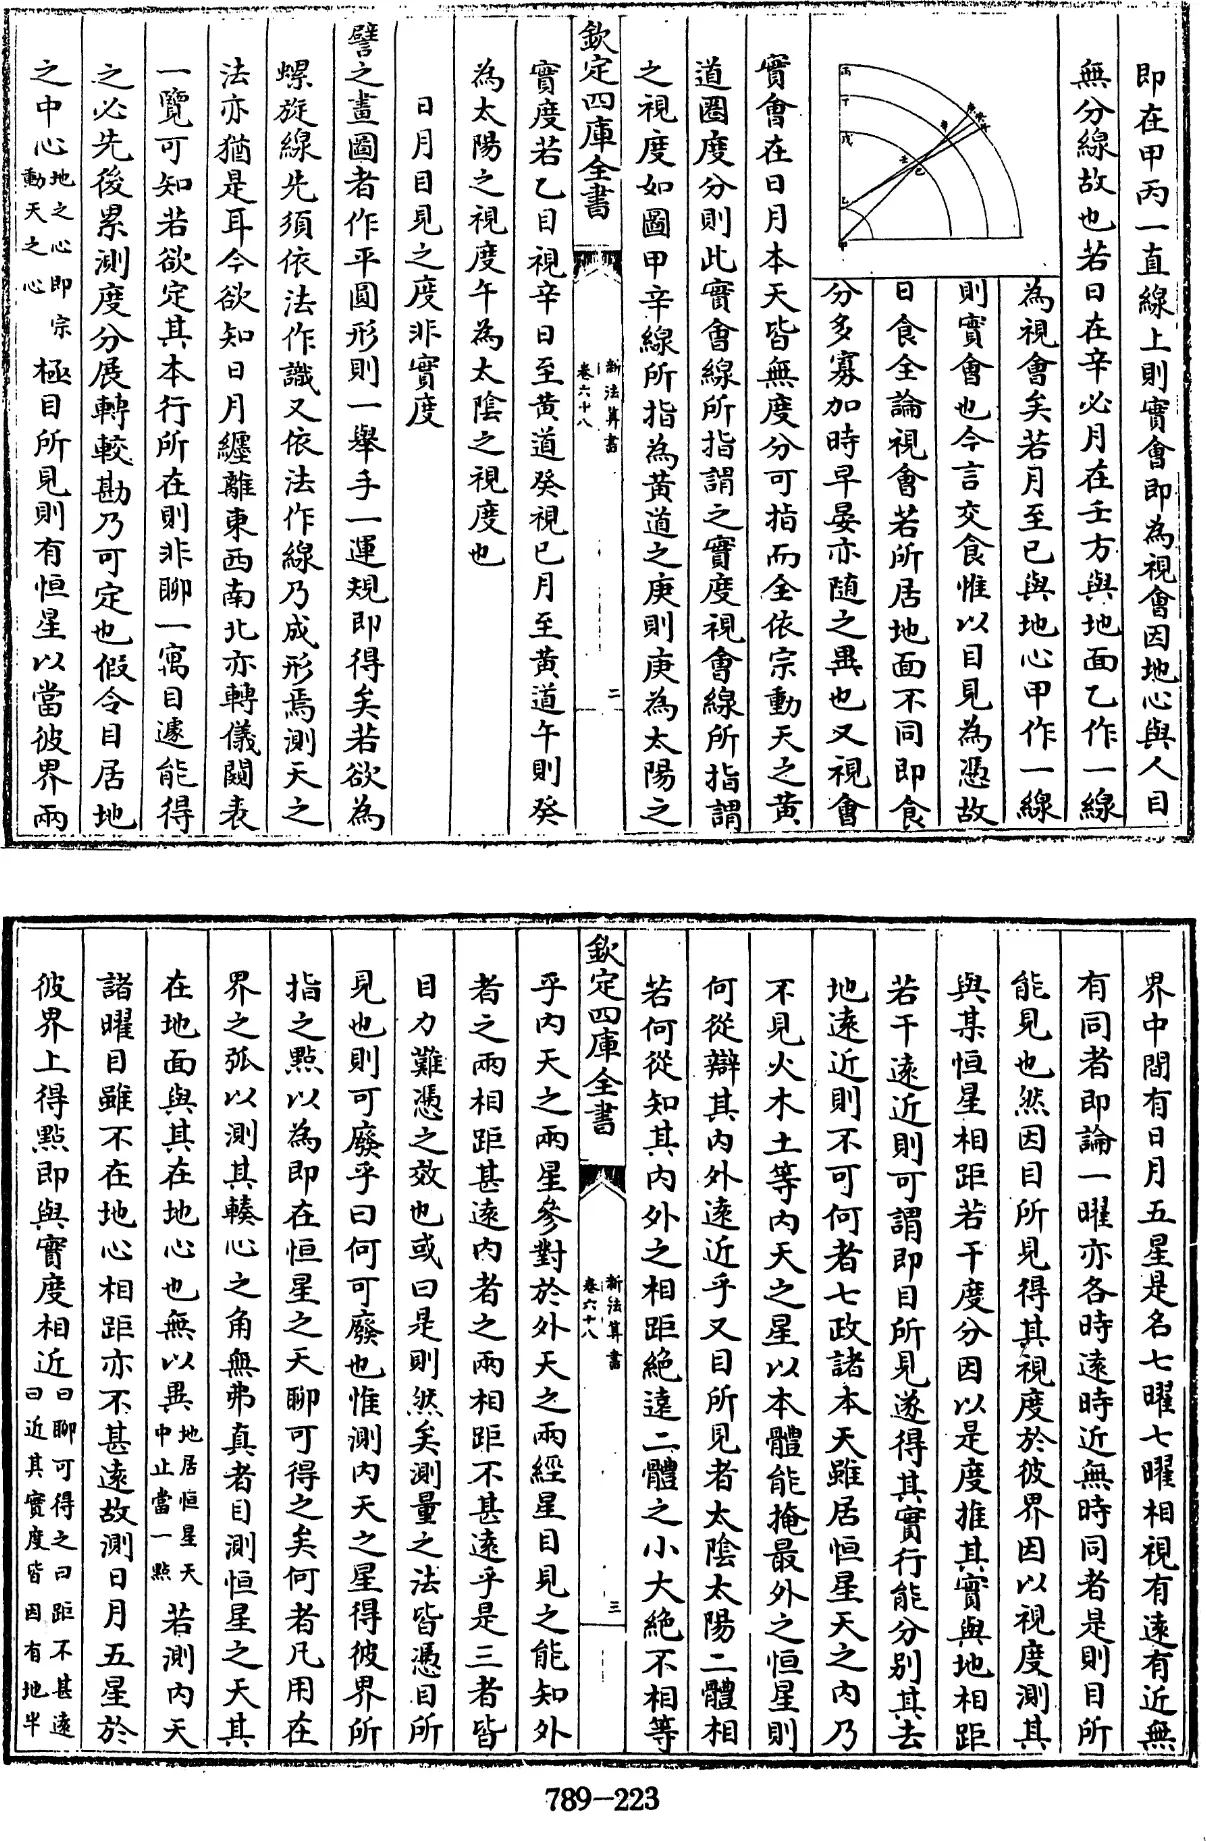 即在甲丙一直線上則實會即為視會因地心與人目
無分線故也若日在辛必月在壬方與地面乙作一線
為視會矣若月至已與地心甲作一線
則實會也今言交食惟以目見為憑故
日食全論視會若所居地面不同即食
分多寡加時早晏亦隨之異也又視會
丙
丁
戊
乙
甲
壬
已
實會在日月本天皆無度分可指而全依宗動天之黃
道圈度分則此實會線所指謂之實度視會線所指謂
之視度如圖甲辛線所指為黃道之庚則庚為太陽之
欽定四庫全書
新法算書
卷六十八
二
實度若乙目視辛日至黃道癸視已月至黃道午則癸
為太陽之視度午為太陰之視度也
日月目見之度非實度
譬之畫圖者作平圓形則一舉手一運規即得矣若欲為
螺旋線先須依法作識又依法作線乃成形焉測天之
法亦猶是耳今欲知日月纏離東西南北亦轉儀闚表
一覽可知若欲定其本行所在則非聊一寓目遽能得
之必先後累測度分展轉較勘乃可定也假令目居地
之中心地之心即宗動天之心極目所見則有恒星以當彼界兩
界中間有日月五星是名七曜七曜相視有遠有近無
有同者即論一曜亦各時遠時近無時同者是則目所
能見也然因目所見得其視度於彼界因以視度測其
與某恒星相距若干度分因以是度推其實與地相距
若干遠近則可謂即目所見遂得其實行能分別其去
地遠近則不可何者七政諸本天雖居恒星天之內乃
不見火木土等內天之星以本體能掩最外之恒星則
何從辯其內外遠近乎又目所見者太陰太陽二體相
若何從知其內外之相距絶遠二體之小大絶不相等
欽定四庫全書
新法算書
卷六十八
三
乎內天之兩星參對於外天之兩經星目見之能知外
者之兩相距甚遠內者之兩相距不甚遠乎是三者皆
目力難憑之效也或曰是則然矣測量之法皆憑目所
見也則可廢乎曰何可廢也惟測內天之星得彼界所
指之點以為即在恒星之天聊可得之矣何者凡用在
界之弧以測其輳心之角無弗真者目測恒星之天其
在地面與其在地心也無以異地居恒星天中止當一點若測內天
諸曜目雖不在地心相距亦不甚遠故測日月五星於
彼界上得點即與實度相近曰聊可得之曰距不甚遠曰近其實度皆因有地半
789-223